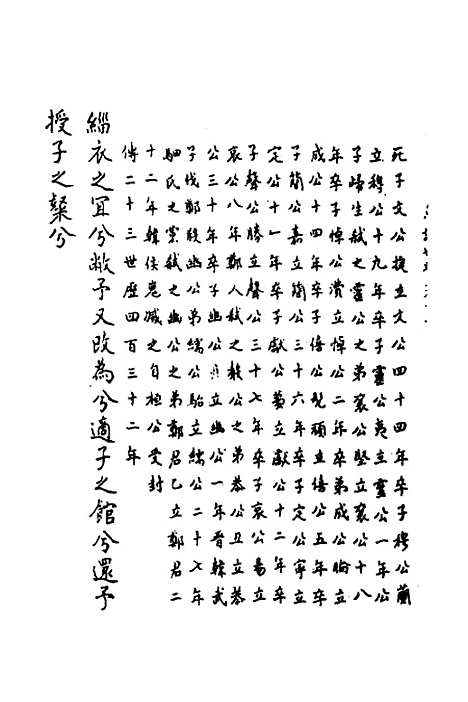 死子文公捷立文公四十四年卒子穆公蘭
立穆公十九年卒子靈公夷立靈公一年公
子歸生弑之靈公之弟襄公堅立襄公十八
年卒子悼公濆立悼公二年卒弟成公睔立
成公十四年卒子僖公髠頑立僖公五年卒
子簡公嘉立簡公三十六年卒子定公寧立
定公十一年卒子獻公蠆立獻公十二年卒
子聲公勝立聲公三十七年卒子哀公易立
哀公八年鄭人弑之聲公之弟恭公丑立恭
公三十年卒子幽公已立幽公一年晉韓武
子伐鄭殺幽公弟繻公駘立繻公二十七年
駟氏之黨弑之幽公之弟鄭君乙立鄭君二
十二年韓侯惠滅之自桓公受封
傳二十三世歷四百三十二年
緇衣之宜兮敝予又改為兮適子之館兮還予
授子之粲兮